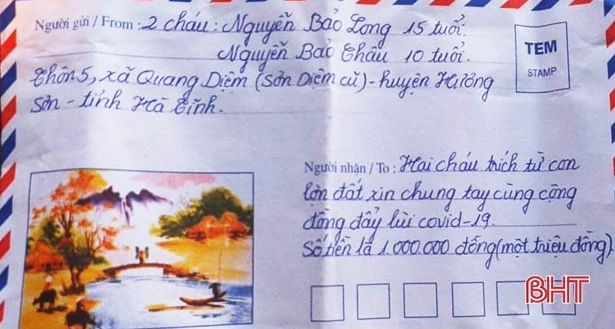 Người gửi / From : 2 cháu : Nguyễn Bảo Long 15 tuổi.
Nguyễn Bảo Châu 10 tuổi.
Thôn 5, xã Quang Diệm (Sơn Diệm cũ) - huyện Hương
Sơn - tỉnh Hà Tĩnh.
TEM
STAMP
Người nhận / To : Hai cháu trích từ con
lợn đất xin chung tay cùng cộng
đồng đẩy lùi covid-19.
Số tiền là 1.000.000 đồng (một triệu đồng).
BHT